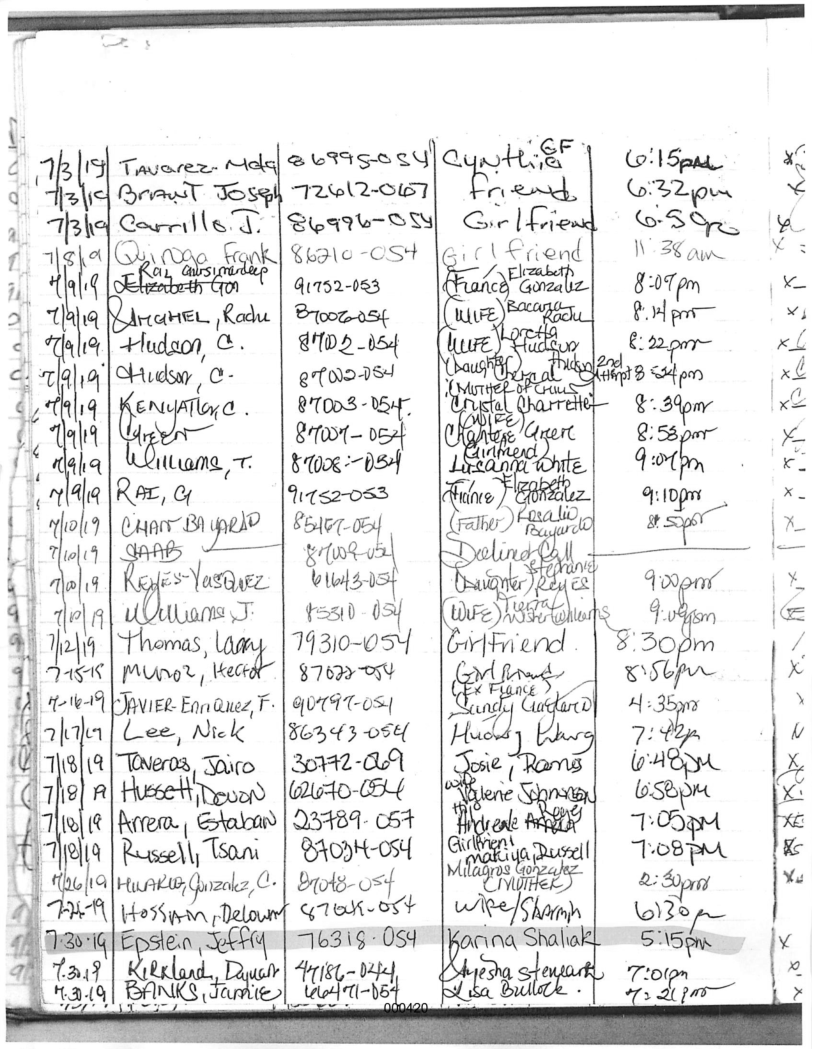 7/3/19 Tavarez- 86995-054 Cynthia GF 6:15pm X
7/3/19 Briant Joseph 72612-067 friend 6:32pm X
7/3/19 Carrillo J. 86996-054 Girlfriend 6:50p
7/8/19 Quiroga Frank 86210-054 Girlfriend 11:38am X
7/9/19 Rai, 91752-053 (Fiance) Elizabeth Gonzalez 8:07pm X
7/9/19 Radu 87006-054 (WIFE) Radu 8:14pm X
7/9/19 Hudson, C. 87002-054 (WIFE) Loretta Hudson 8:22pm X
7/9/19 Hudson, C. 87002-054 (Daughter) Hudson 2nd Attempt 8:34pm X
7/9/19 Kenyatta, C. 87003-054 (MOTHER OF CHILD) Crystal 8:39pm X
7/9/19 Green 87007-054 (WIFE) Green 8:53pm X
7/9/19 Williams, T. 87008-054 (Girlfriend) White 9:07pm X
7/9/19 RAI, G 91752-053 (Fiance) Elizabeth Gonzalez 9:10pm X
7/10/19 CHAN BAYARDO 85467-054 (Father) Rosalio Bayardo 8:50pm X
7/10/19 SAAB 87009-054 Declined Call
7/10/19 REYES-VASQUEZ 61643-054 (Daughter) Stephanie Reyes 9:00pm X
7/10/19 Williams J. 85310-054 (WIFE) 9:09pm
7/12/19 Thomas, Larry 79310-054 Girlfriend. 8:30pm
7-15-19 Munoz, Hector 87022-054 Girl Friend 8:56pm X
7-16-19 JAVIER-Enriquez, F. 90797-054 (Ex Fiance) 4:35pm X
7/17/19 Lee, Nick 86343-054 7:42p N
7/18/19 Taveras, Jairo 30772-069 Josie, Ramos 6:48PM X
7/18/19 Hussett, Devon 62670-054 wife Valerie Johnson 6:58PM X
7/18/19 Arrera, Estaban 23789-057 7:05PM X
7/18/19 Russell, Tsani 87034-054 Girlfriend makiya, Russell 7:08PM
7/26/19 Gonzalez, C. 87048-054 Milagros Gonzalez (MOTHER) 2:30pm X
Hossain, Delowar wife/Sharmin 6:30p
7.30.19 Epstein, Jeffry 76318-054 Karina Shaliak 5:15pm X
7.30.19 Kirkland, Dajuan 47186-044 Ayesha Steward 7:01pm
7.30.19 BANKS, Jamie 66471-054 Lisa Bullock. 7:21pm X
000420